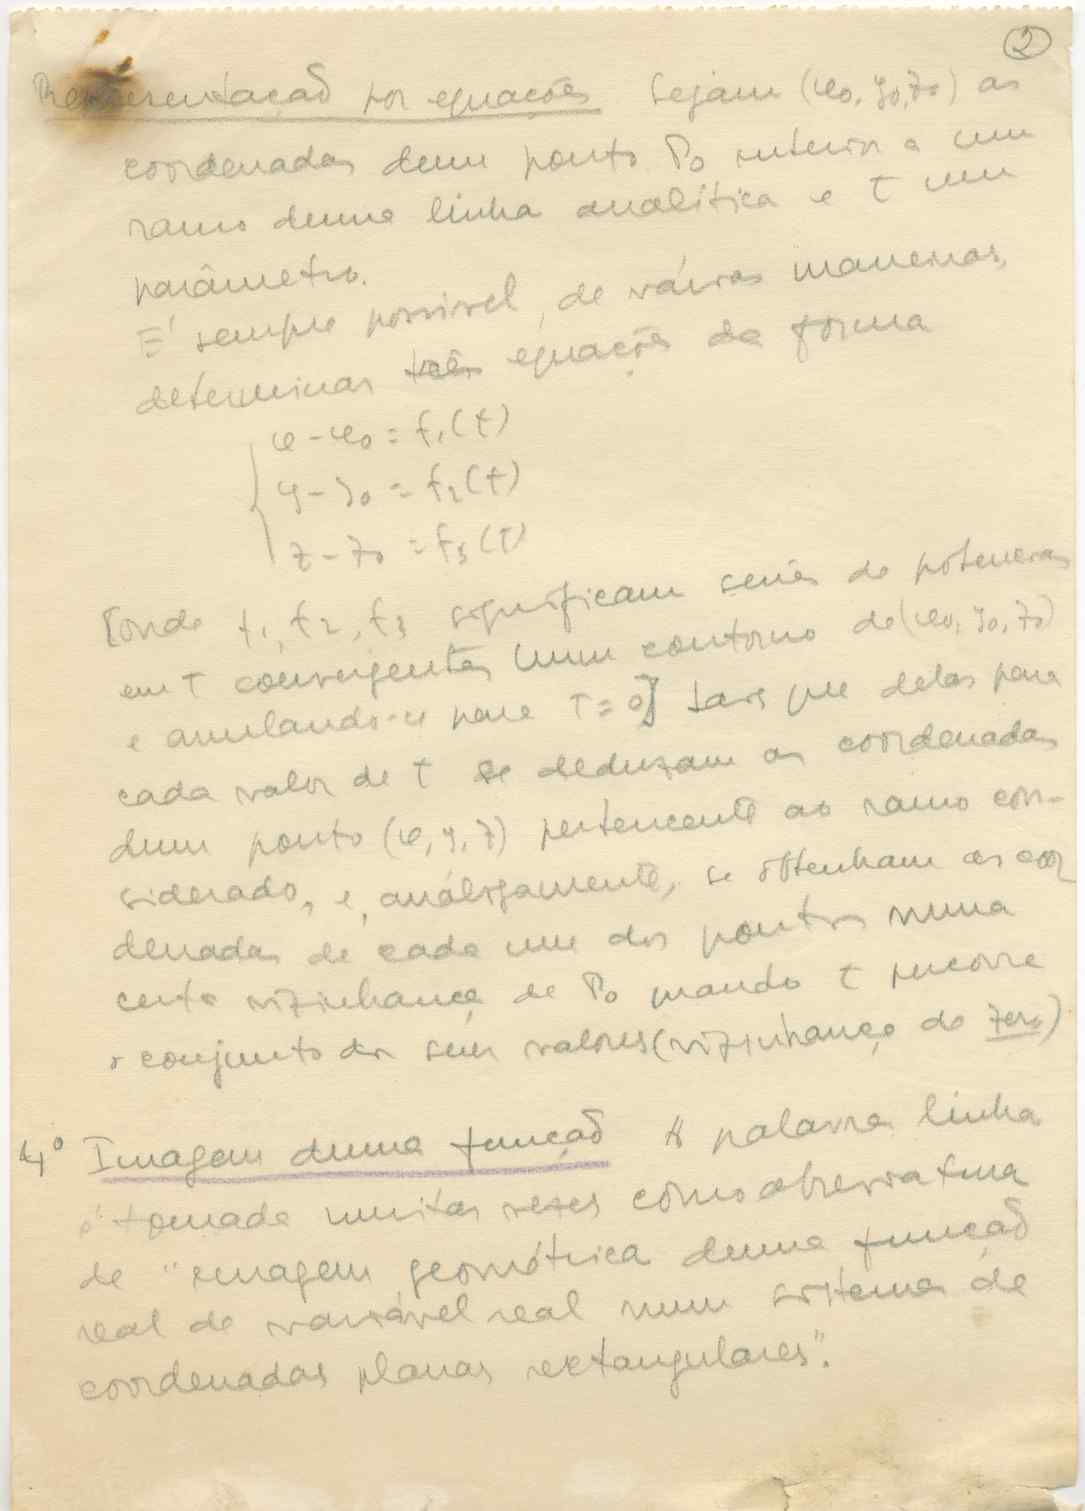 2
Representação por equações Sejam (x0, y0, z0) as
coordenadas dum ponto P0 interior a um
ramo duma linha analítica e t um
parâmetro.
É sempre possivel, de várias maneiras,
determinar três equações da forma
x - x0 = f1(t)
y - y0 = f2(t)
z - z0 = f3(t)
[onde f1, f2, f3 significam series de potencias
em t convergentes num contorno de (x0, y0, z0)
e anulando-se para t = 0] tais que delas para
cada valor de t se deduzam as coordenadas
dum ponto (x, y, z) pertencente ao ramo con-
siderado, e, análogamente, se obtenham as coor
denadas de cada um dos pontos numa
certa vizinhança de P0 quando t percorre
o conjunto dos seus valores (vizinhança do zero)
4º Imagem duma função A palavra linha
é tomada muitas vezes como abreviatura
de "imagem geométrica duma função
real de variável real num sistema de
coordenadas planas rectangulares".